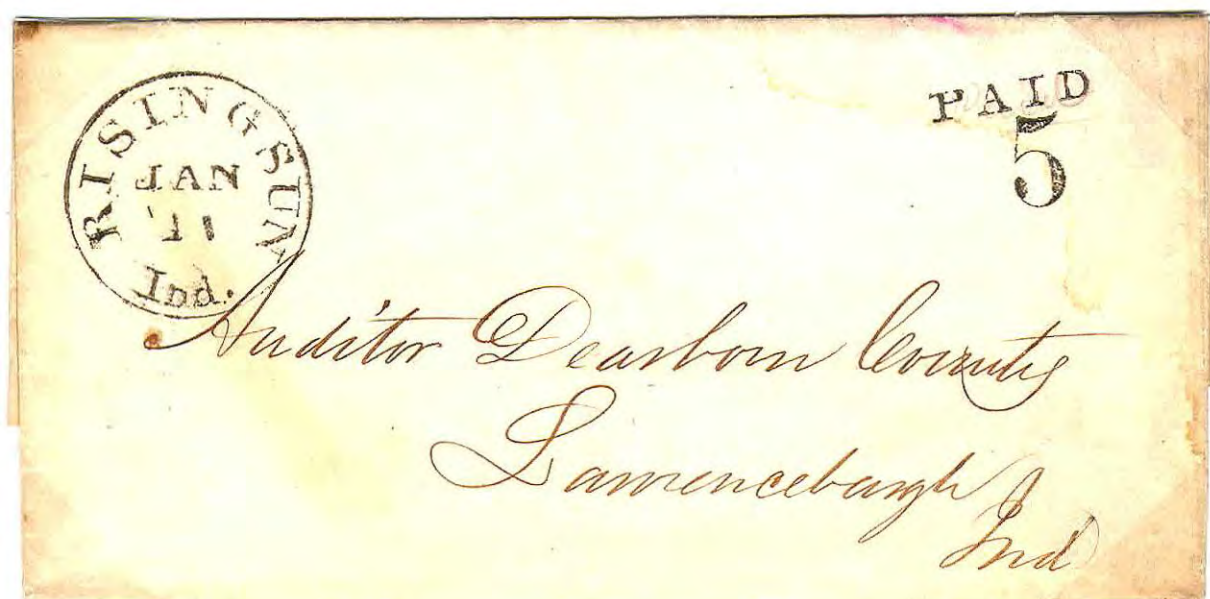 RISING SUN
JAN
11
Ind.
PAID
5
Auditor Dearborn County
Lawrenceburgh
Ind